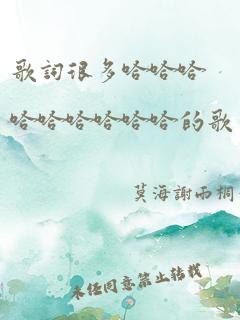 歌詞很多哈哈哈
哈哈哈哈哈哈的歌
莫海謝雨桐
未經同意禁止轉載